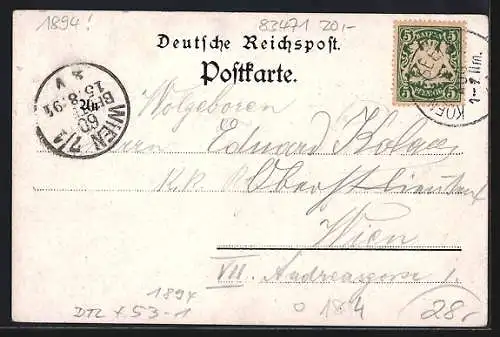 1894!
83471 20,-
Deutsche Reichspost.
Postkarte.
BAYERN
5 5
5 PFENNIG 5
1-2 Nm.
WIEN 7/1
15.8.94
An
Wolgeboren
Herrn Eduard
K.K. Oberstlieutenant
Wien
VII. Andreasgasse 1
1894
DTL + 53-1
28,-